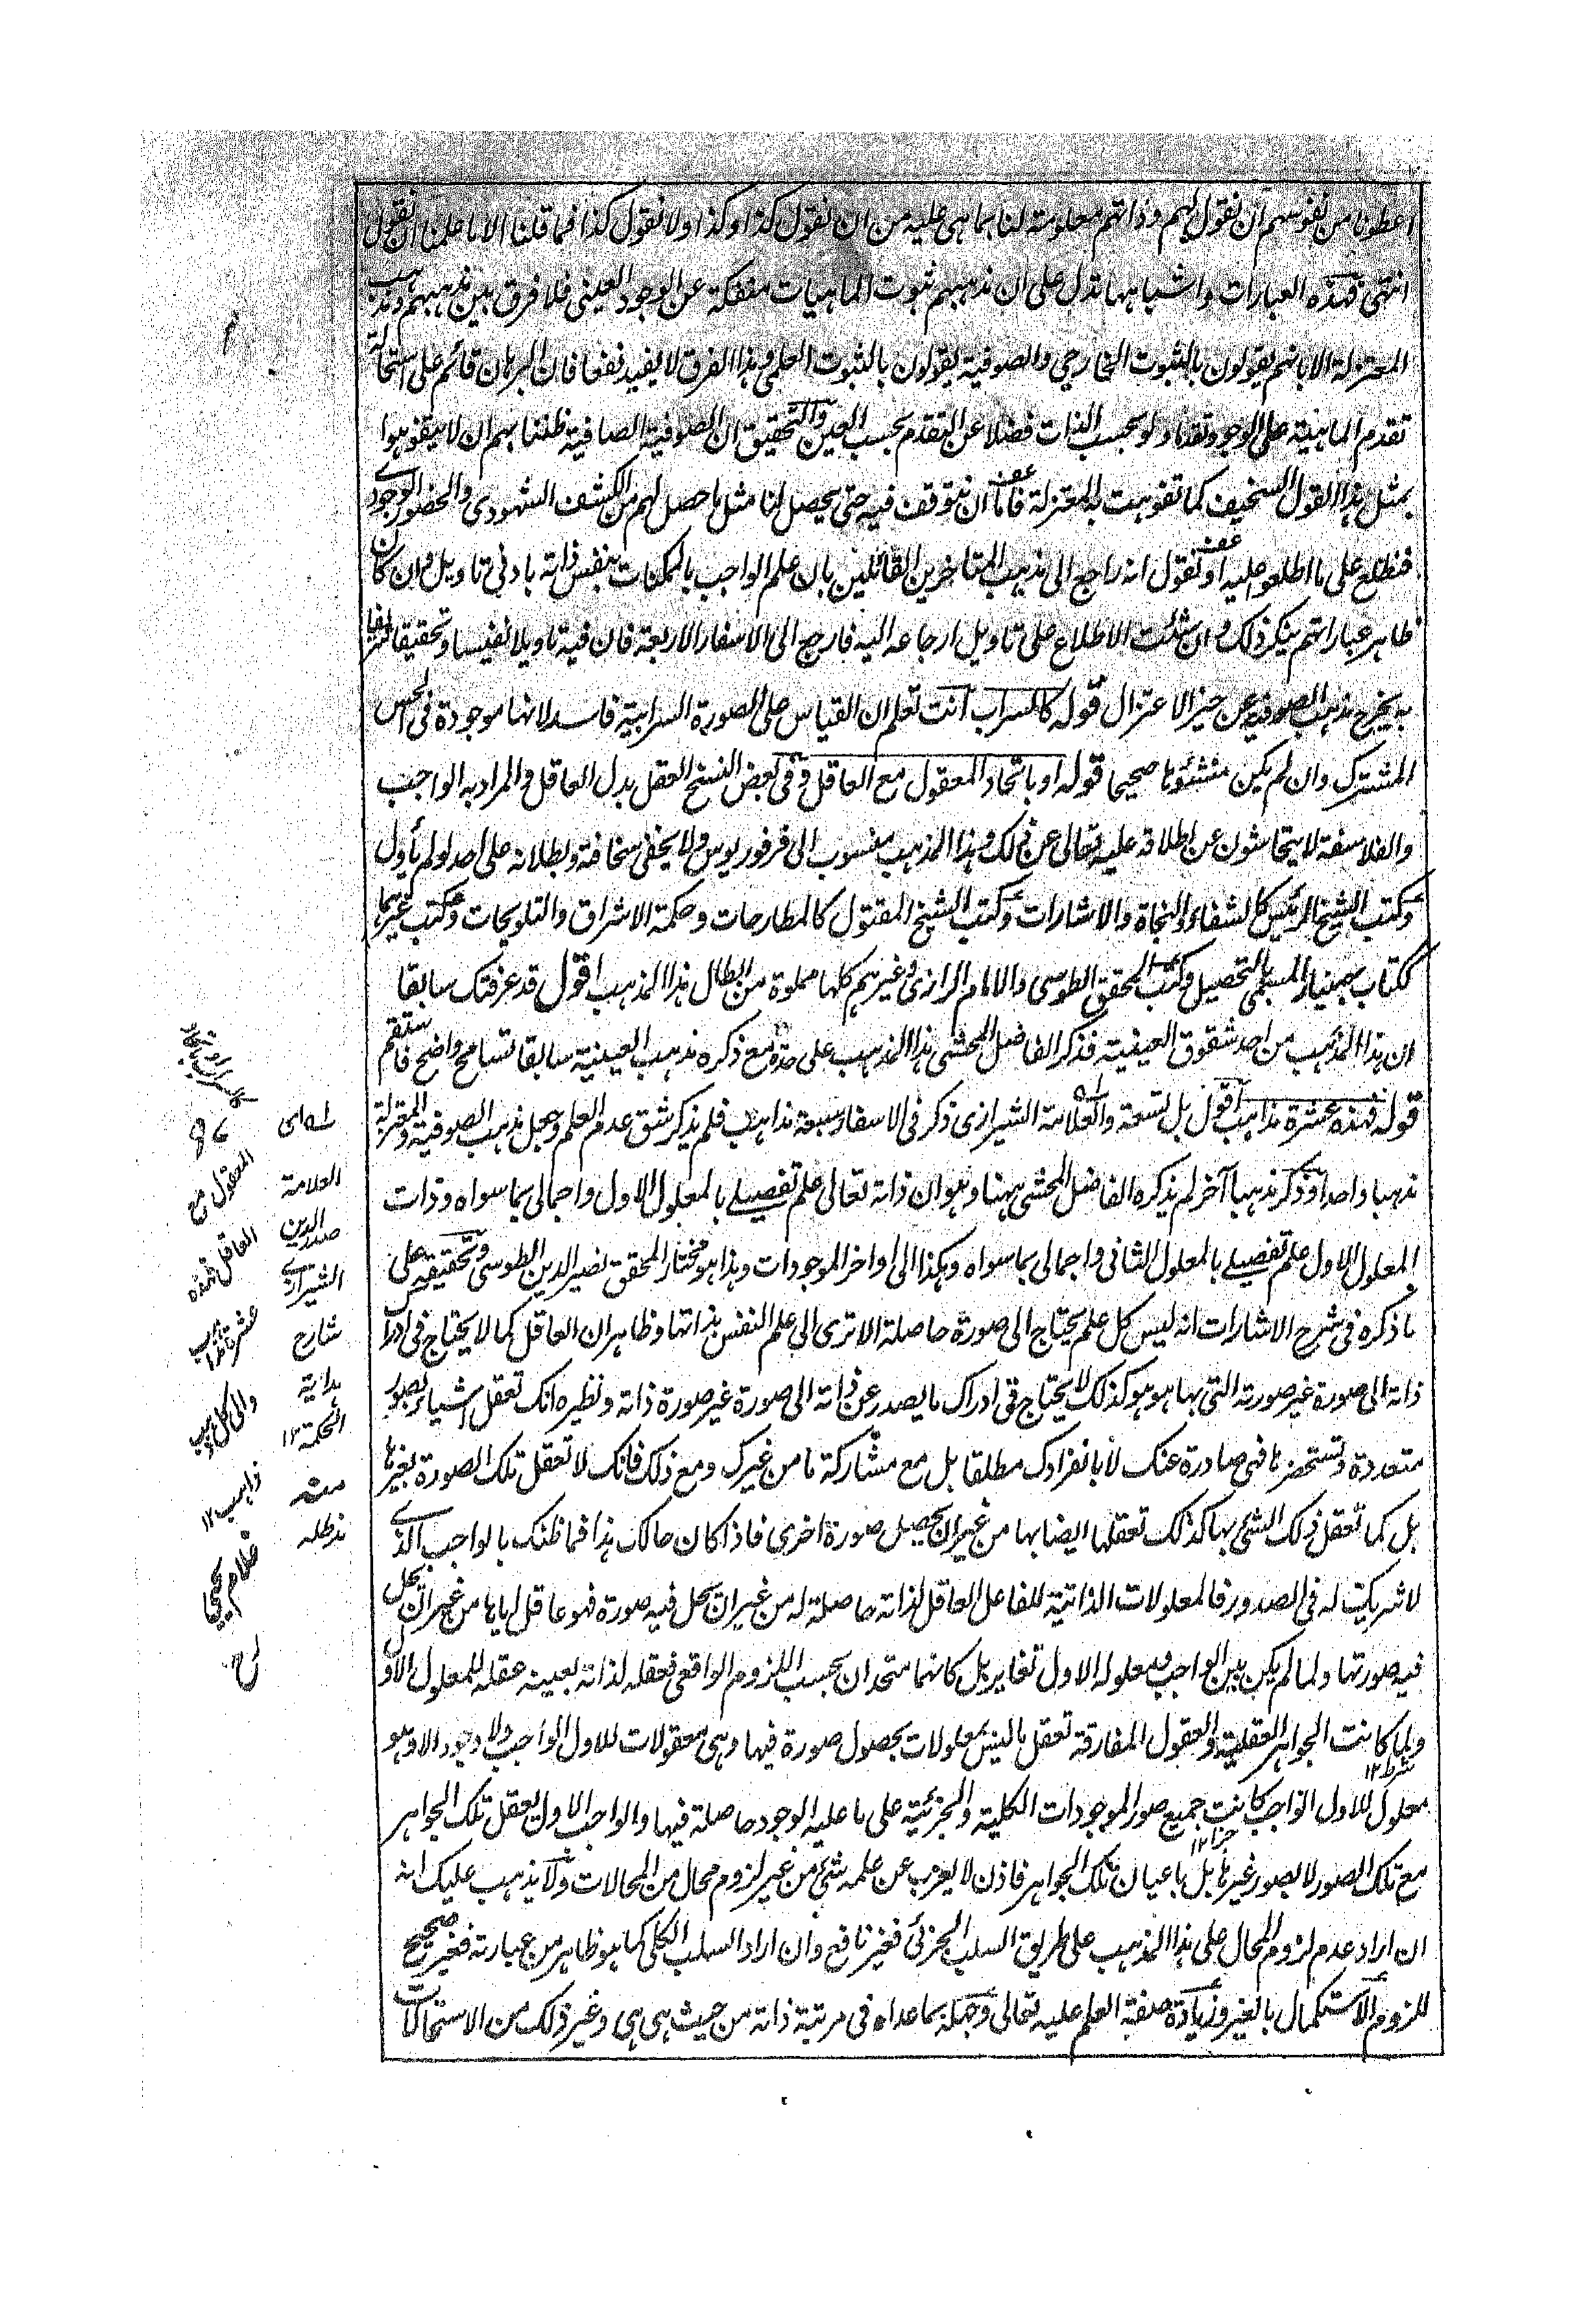 اعطونا من نفوسهم ان نقول لهم وذاتهم معلومة لنا بما هى عليه من ان نقول كذا وكذا ولا نقول كذا فما قلنا الا ما علمنا ان نقول
انتهى فهذه العبارات واشباهها تدل على ان مذهبهم ثبوت الماهيات منفكة عن الوجود العينى فلا فرق بين مذهبهم ومذهب
المعتزلة الا بانهم يقولون بالثبوت الخارجي والصوفية يقولون بالثبوت العلمى وهذا الفرق لا يفيد نفعا فان البرهان قائم على استحالة
تقدم الماهية على الوجود تقدما ولو بحسب الذات فضلا عن التقدم بحسب العين والتحقيق ان الصوفية الصافية ظننا بهم ان لا يتفوهوا
بمثل هذا القول السخيف كما تفوهت به المعتزلة فاما ان نتوقف فيه حتى يحصل لنا مثل ما حصل لهم من الكشف الشهودى والحضور الوجودى
فنطلع على ما اطلعوا عليه او نقول انه راجع الى مذهب المتاخرين القائلين بان علم الواجب بالممكنات بنفس ذاته بادنى تاويل وان كان
ظاهر عباراتهم ينكر ذلك وان شئت الاطلاع على تاويل ارجاعه اليه فارجع الى الاسفار الاربعة فان فيه تاويلا نفيسا وتحقيقا شريفا
به يخرج مذهب الصوفية عن حيز الاعتزال قوله كالسراب انت تعلم ان القياس على الصورة السرابية فاسد لانها موجودة فى الحس
المشترك وان لم يكن منشؤها صحيحا قوله او باتحاد المعقول مع العاقل وفى بعض النسخ العقل بدل العاقل والمراد به الواجب
والفلاسفة لا يتحاشون عن اطلاقه عليه تعالى عن ذلك وهذا المذهب منسوب الى فرفوريوس ولا يخفى سخافة وبطلانه على احد لو لم يأول
وكتب الشيخ الرئيس كالشفاء والنجاة والاشارات وكتب الشيخ المقتول كالمطارحات وحكمة الاشراق والتلويحات وكتب غيرهما
ككتاب بهمنيار المسمى بالتحصيل وكتب المحقق الطوسى والامام الرازى وغيرهم كلها مملوة من ابطال هذا المذهب اقول قد عرفتك سابقا
ان هذا المذهب من احد شقوق العينية فذكر الفاضل المحشى هذا المذهب على حدة مع ذكره مذهب العينية سابقا تسامح واضح فاستقم
قوله فهذه عشرة مذاهب اقول بل تسعة والعلامة الشيرازى ذكر فى الاسفار سبعة مذاهب فلم يذكر شق عدم العلم وجعل مذهب الصوفية والمعتزلة
مذهبا واحدا وذكر مذهبا آخر لم يذكره الفاضل المحشى ههنا وهو ان ذاته تعالى علم تفصيلے بالمعلول الاول واجمالى بما سواه وذات
المعلول الاول علم تفصيلے بالمعلول الثانى واجمالى بما سواه وهكذا الى اواخر الموجودات وهذا هو مختار المحقق نصير الدين الطوسى وتحقيقه على
ما ذكره فى شرح الاشارات انه ليس كل علم يحتاج الى صورة حاصلة الا ترى الى علم النفس بذاتها وظاهر ان العاقل كما لا يحتاج فى ادراك
ذاته الى صورة غير صورته التى بها هو هو كذلك لا يحتاج فى ادراك ما يصدر عن ذاته الى صورة غير صورة ذاته ونظيره انك تعقل اشياء بصور
متعددة وتستحضرها فهى صادرة عنك لا بانفرادك مطلقا بل مع مشاركة ما من غيرك ومع ذلك فانك لا تعقل تلك الصورة بغيرها
بل كما تعقل ذلك الشئ بها كذلك تعقلها ايضا بها من غير ان يحصل صورة اخرى فاذا كان حالك هذا فما ظنك بالواجب الذے
لا شريك له فى الصدور فالمعلولات الذاتية للفاعل العاقل لذاته حاصلة له من غير ان يحل فيه صورة فهو عاقل اياها من غير ان يحل
فيه صورتها ولما لم يكن بين الواجب ومعلوله الاول تغاير بل كانهما متحدان بحسب اللزوم الواقعى فعقله لذاته بعينه عقله للمعلول الاول
ولما كانت الجواهر العقلية والعقول المفارقة تعقل ما ليس بمعلولات بحصول صورة فيها وهى معقولات للاول الواجب ولا وجود الا وهو
شرط ١٢
معلول للاول الواجب كانت جميع صور الموجودات الكلية والجزئية على ما عليه الوجود حاصلة فيها والواجب الاول يعقل تلك الجواهر
جزا ١٢
مع تلك الصور لا بصور غيرها بل باعيان تلك الجواهر فاذن لا يعزب عن علمه شئ من غير لزوم محال من المحالات ولا يذهب عليك انه
ان اراد عدم لزوم المحال على هذا المذهب على طريق السلب الجزئى فغير نافع وان اراد السلب الكلى كما هو ظاهر من عبارته فغير صحيح
للزوم الاستكمال بالغير وزيادة صفة العلم عليه تعالى وجهله بما عداه فى مرتبة ذاته من حيث هى هى وغير ذلك من الاستحالات
العلامة
صدر الدين
الشيرازے
شارح
هداية
الحكمة ١٢
منه
مدظله
المعقول مع
العاقل فهذه
عشرة مذاهب